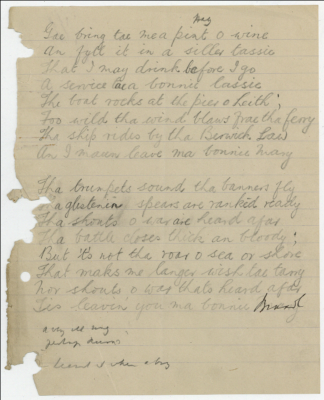 Gae bring tae me a pint o wine
An fyll it in a siller tassie
That I may drink before I go
A service tae a bonnie lassie
The boat rocks at the pier o Leith;
Foo wild tha wind blaws frae tha ferry
Tha ship rides by tha Berwick Law
An I maun leave ma bonnie Mary
Tha trumpets sound tha banners fly
Tha glistenin spears are rankid ready
Tha shouts o war are heard afar
Tha battle closes thick an bloody;
But its not tha roar o sea or shore
That makes me langer wish tae tarry
Nor shouts o war thats heard afar
Tis leavin you ma bonnie
a very old song
perhaps
learned it when a boy